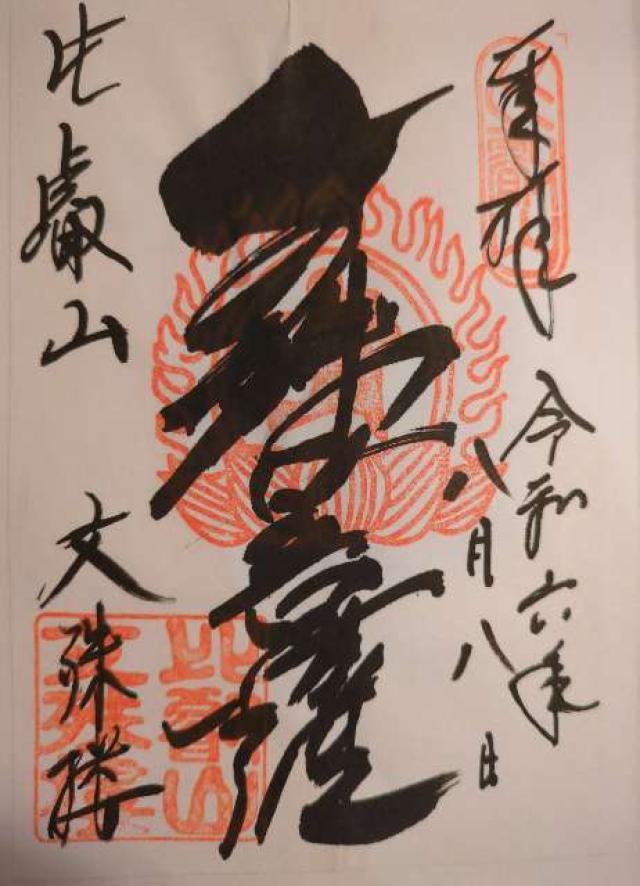 奉拝
令和六年
八月八日
文殊菩薩
比叡山 文殊楼
比叡山
文殊楼